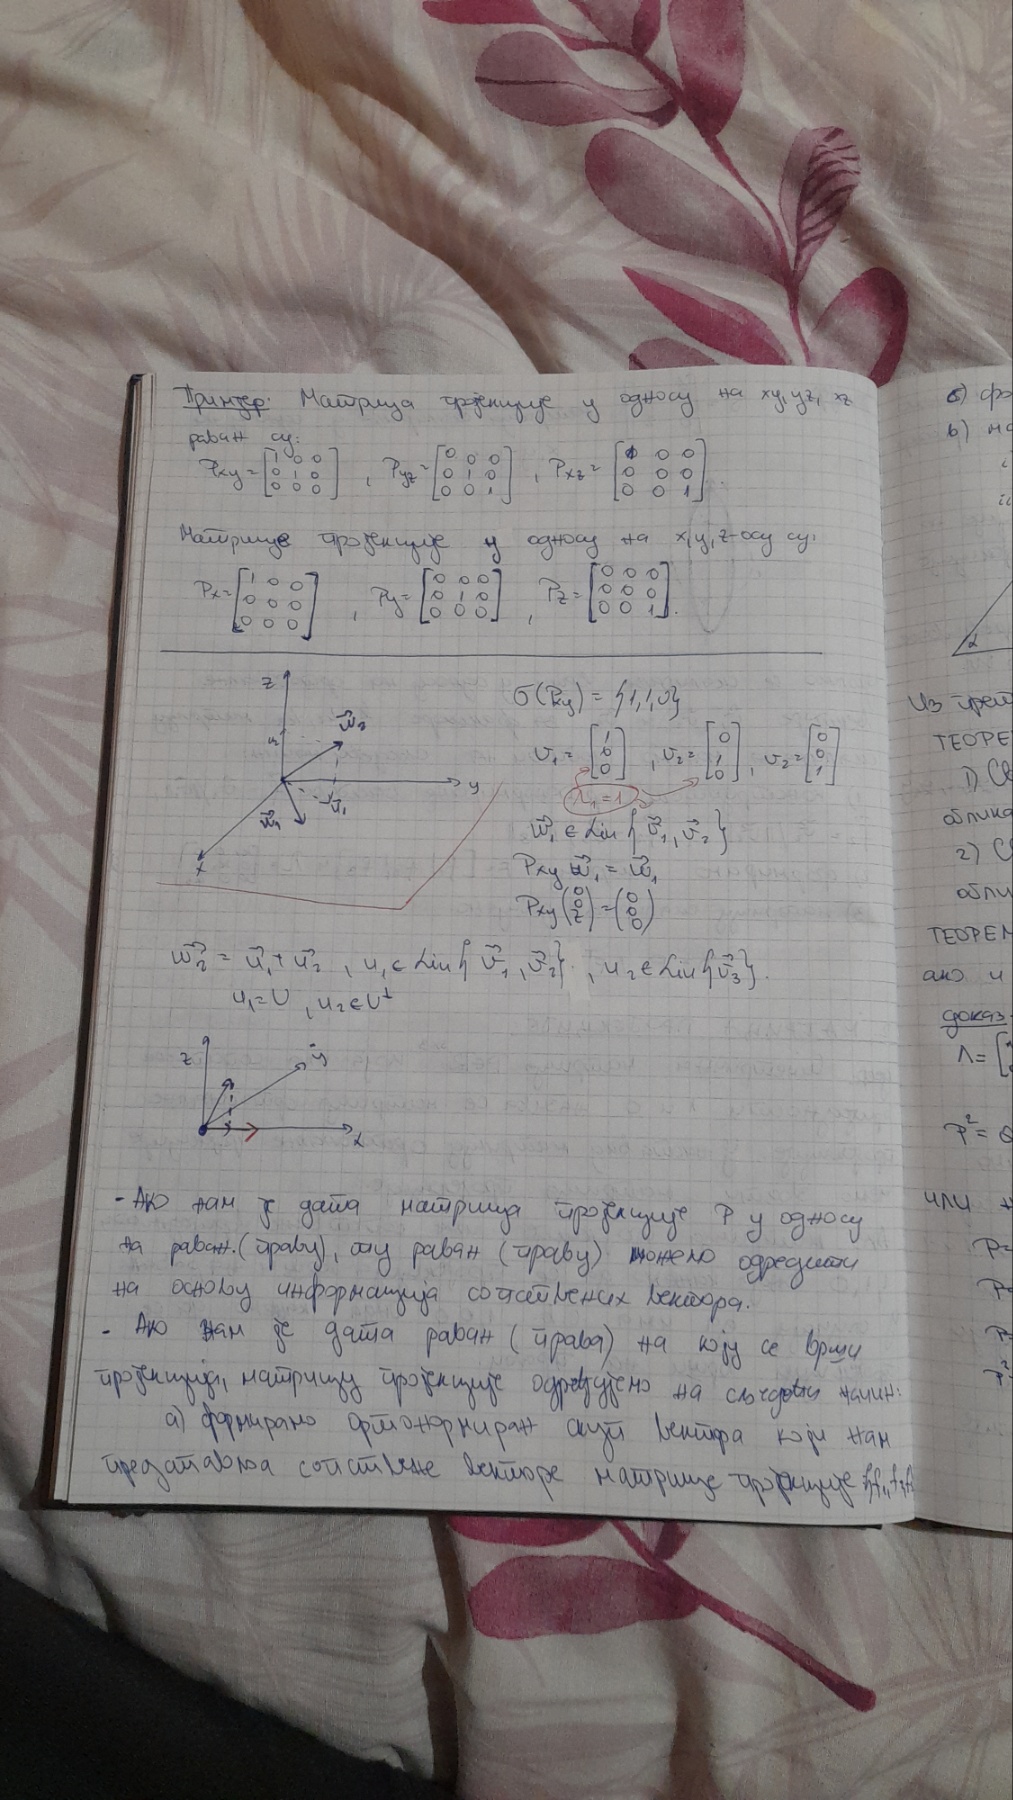 Пример: Матрица пројекције у односу на xy, yz, xz
раван су:
Pxy = [1 0 0; 0 1 0; 0 0 0], Pyz = [0 0 0; 0 1 0; 0 0 1], Pxz = [1 0 0; 0 0 0; 0 0 1].
Матрице пројекције у односу на x, y, z-осу су:
Px = [1 0 0; 0 0 0; 0 0 0], Py = [0 0 0; 0 1 0; 0 0 0], Pz = [0 0 0; 0 0 0; 0 0 1].
z
y
x
w⃗2
u⃗1
w⃗1
σ(Pxy) = {1,1,0}
v1 = [1; 0; 0], v2 = [0; 1; 0], v2 = [0; 0; 1]
λ1 = 1
w⃗1 ∈ Lin{v⃗1, v⃗2}
Pxy w⃗1 = w⃗1
Pxy (0; 0; z) = (0; 0; 0)
w⃗2 = u⃗1 + u⃗2, u1 ∈ Lin{v⃗1, v⃗2}, u2 ∈ Lin{v⃗3}.
u1 = U, u2 ∈ U⊥
z
y
x
- Ако нам је дата матрица пројекције P у односу
на раван (праву), ту раван (праву) можемо одредити
на основу информација сопствених вектора.
- Ако нам је дата раван (права) на коју се врши
пројекција, матрицу пројекције одређујемо на следећи начин:
а) формирамо ортонормиран скуп вектора који нам
представља сопствене векторе матрице пројекције
б)
в)
Из
ТЕОРЕ
1)
облика
2)
ТЕОРЕМ
ако и
доказ
Λ = [
P² =
или
P=